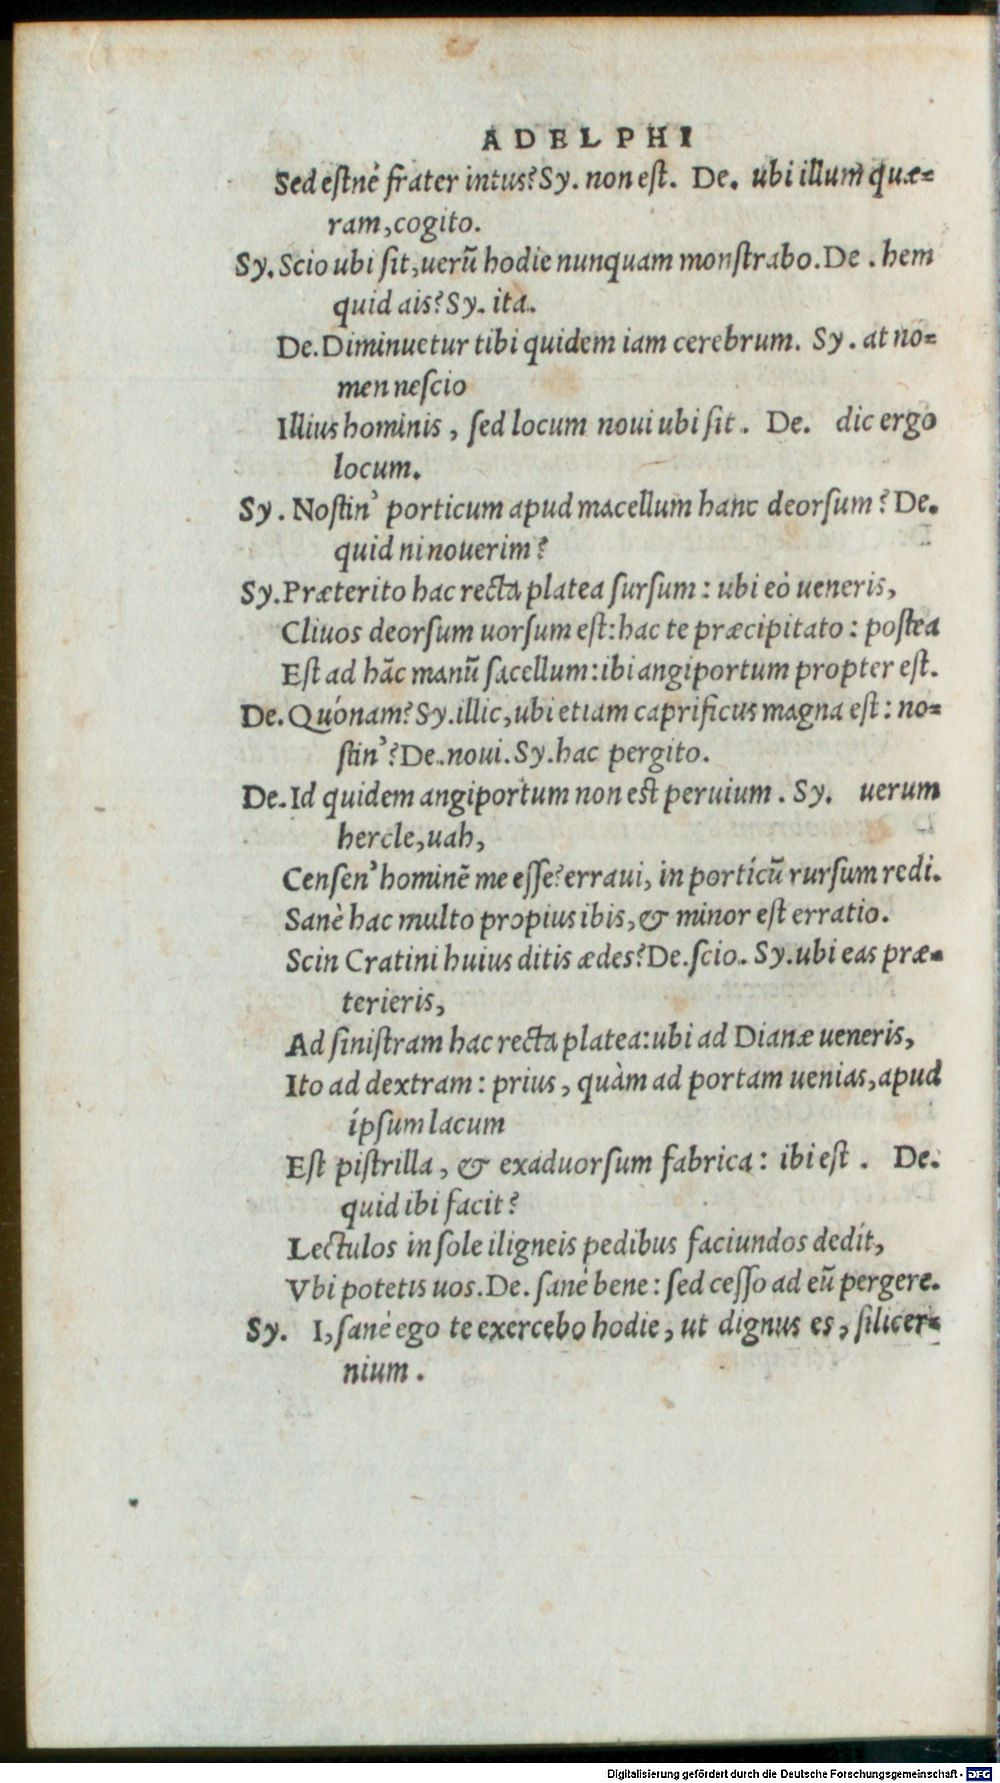 ADELPHI
Sed estnè frater intus? Sy. non est. De. ubi illum quæ=
ram, cogito.
Sy. Scio ubi sit, uerũ hodie nunquam monstrabo. De. hem
quid ais? Sy. ita.
De. Diminuetur tibi quidem iam cerebrum. Sy. at no=
men nescio
Illius hominis, sed locum noui ubi sit. De. dic ergo
locum.
Sy. Nostin' porticum apud macellum hanc deorsum? De.
quid ni nouerim?
Sy. Præterito hac recta platea sursum: ubi eò ueneris,
Cliuos deorsum uorsum est: hac te præcipitato: postea
Est ad hãc manũ sacellum: ibi angiportum propter est.
De. Quónam? Sy. illic, ubi etiam caprificus magna est: no=
stin'? De. noui. Sy. hac pergito.
De. Id quidem angiportum non est peruium. Sy. uerum
hercle, uah,
Censen' hominẽ me esse? erraui, in porticũ rursum redi.
Sanè hac multo propius ibis, & minor est erratio.
Scin Cratini huius ditis ædes? De. scio. Sy. ubi eas præ=
terieris,
Ad sinistram hac recta platea: ubi ad Dianæ ueneris,
Ito ad dextram: prius, quàm ad portam uenias, apud
ipsum lacum
Est pistrilla, & exaduorsum fabrica: ibi est. De.
quid ibi facit?
Lectulos in sole iligneis pedibus faciundos dedit,
Vbi potetis uos. De. sanè bene: sed cesso ad eũ pergere.
Sy. I, sanè ego te exercebo hodie, ut dignus es, silicer=
nium.
Digitalisierung gefördert durch die Deutsche Forschungsgemeinschaft - DFG